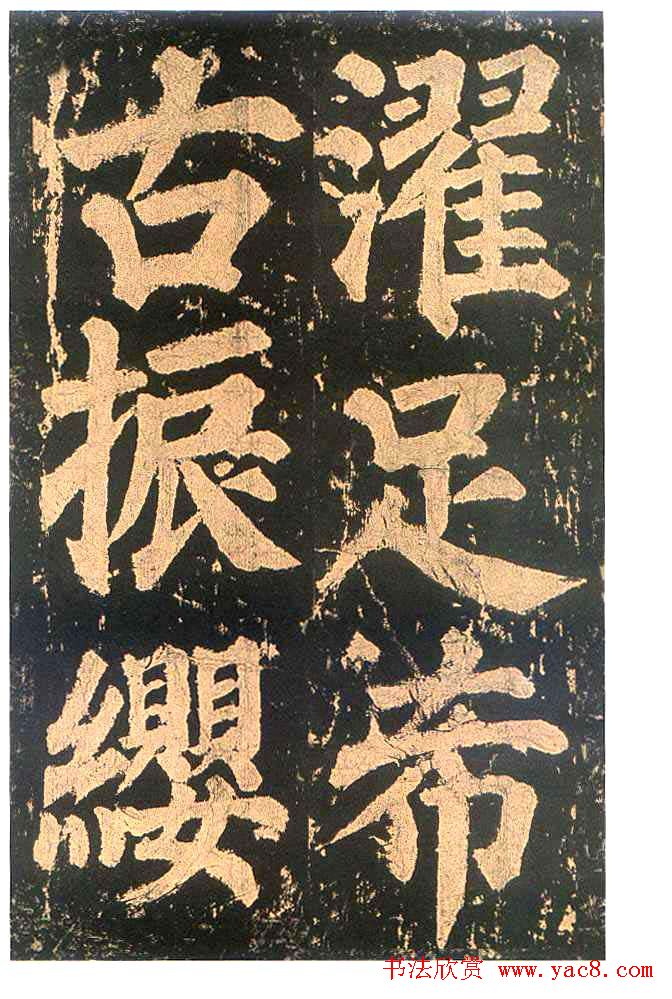 濯足希
古振纓
书法欣赏 www.yac8.com